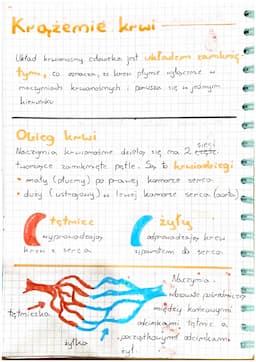 Krążenie krwi
Układ krwionośny człowieka jest układem zamknię-
tym, co oznacza, że krew płynie wyłącznie w
naczyniach krwionośnych i porusza się w jednym
kierunku
Obieg krwi
Naczynia krwionośne dzielą się na 2 sieci
tworzące zamknięte pętle. Są to krwiobiegi
• mały (płucny) po prawej komorze serca
• duży (ustrojowy) w lewej komorze serca (aorta)
tętnice
żyły
wyprowadzają
krew z serca
odprowadzają krew
z powrotem do serca
Naczynia
włosowate
między końcowymi
odcinkami tętnic a
początkowymi odcinkami
żył.
tętniczka
żyłka